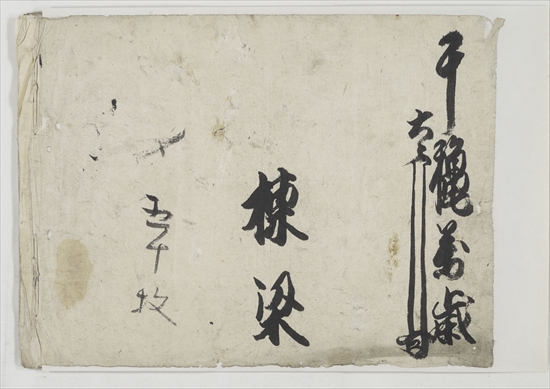 千龝萬歳
大
叶
棟梁
五十枚